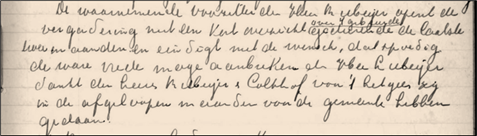 De waarnemende voorzitter den Heer B. Meijer opent de
vergadering met een kort overzicht over 't gebeurde gedurende de laatste
maanden en eindigt met de wensch, dat spoedig
de ware vrede moge aanbreken de Heer Meijer
dankt den heeren B Meijer & Colthof voor 't hetgeen zij
in de afgeloopen maanden voor de gemeente hebben
gedaan.